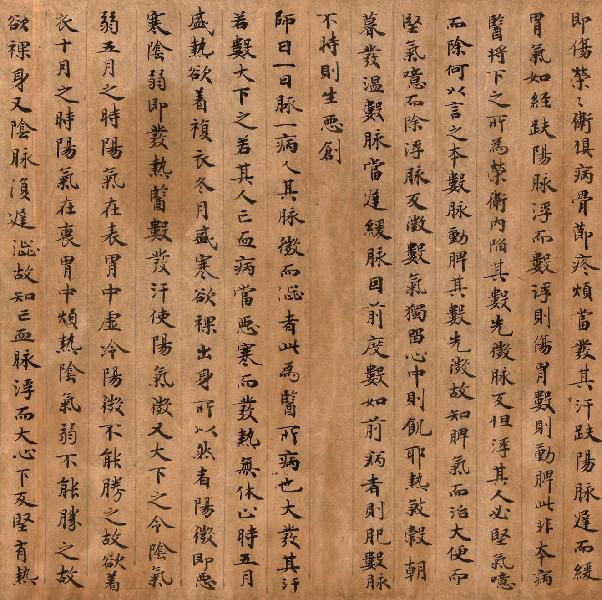 即傷榮〻衛俱病骨節疼煩當發其汗趺陽脉遅而緩
胃氣如經趺陽脉浮而數浮則傷胃數則動脾此非本病
醫将下之所為榮衛內陷其數先微脉反但浮其人必堅氣噫
而除何以言之本數脉動脾其數先微故知脾氣而治大便而
堅氣噫而除浮脉反微數氣獨留心中則飢耶熱敎穀朝
暮發溫數脉當遅緩脉回前度數如前病者則肥數脉
不時則生惡創
師曰一日脉一病人其脉微而澁者此為醫所病也大發其汗
若數大下之若其人亡血病當惡寒而發熱無休止時五月
盛熱欲着複衣冬月盛寒欲裸出身所以然者陽微即惡
寒陰弱即發熱醫數發汗使陽氣微又大下之令陰氣
弱五月之時陽氣在表胃中虛冷陽微不能勝之故欲着
衣十月之時陽氣在裏胃中煩熱陰氣弱不能勝之故
欲裸身又陰脉復遅澁故知亡血脉浮而大心下反堅有熱